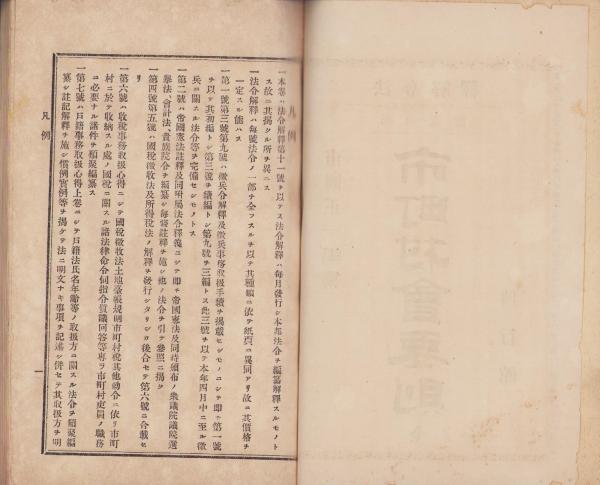 凡例
一本卷ハ法令解釋第十一號ヲ以テス法令解釋ハ每月發行シ本邦法令ヲ編纂解釋スルモノト
ス故ニ其揭クル所ヲ異ニス
一法令解釋ハ每號法令ノ一部ヲ全フスルヲ以テ其種類ニ依テ紙頁ニ異同アリ故ニ其價格ヲ
一定スル能ハス
一第一號第三號第九號ハ徵兵令解釋及徵兵事務取扱手續ヲ揭載セシモノニシテ即チ第一號
ヲ以テ其初編トシ第三號ヲ續編トシ第九號ヲ三編トス此三號ヲ以テ本年四月中ニ至ル徵
兵ニ關スル法令等ヲ完備セシモノトス
一第二號ハ帝國憲法註釋及同附屬法令釋義ニシテ即チ帝國憲法及同時頒布ノ衆議院議院選
擧法、會計法、貴族院令ヲ編纂シ每條註釋ヲ施シ他ノ法令ヲ引テ參照ニ揭ク
一第四號第五號ハ國稅徵收法及所得稅法ノ解釋ヲ發行シタリシカ後合セテ第六號ニ合載セ
リ
一第六號ハ收稅事務取扱心得ニシテ國稅徵收法土地臺帳規則市町村稅其他勅令ニ依リ市町
村ニ於テ收納スル處ノ國稅ニ關スル諸法律命令伺指令質議回答等專ヲ市町村吏員ノ職務
ニ必要ナル諸件ヲ類聚編纂ス
一第七號ハ戶籍事務取扱心得上卷ニシテ戶籍法氏名年齡等ノ取扱方ニ關スル法令ヲ類聚編
纂シ註記解釋ヲ施シ慣例實例等ヲ揭ケテ法ニ明文ナキ事項ヲ記述シ併セテ其取扱方ヲ明
凡例
一